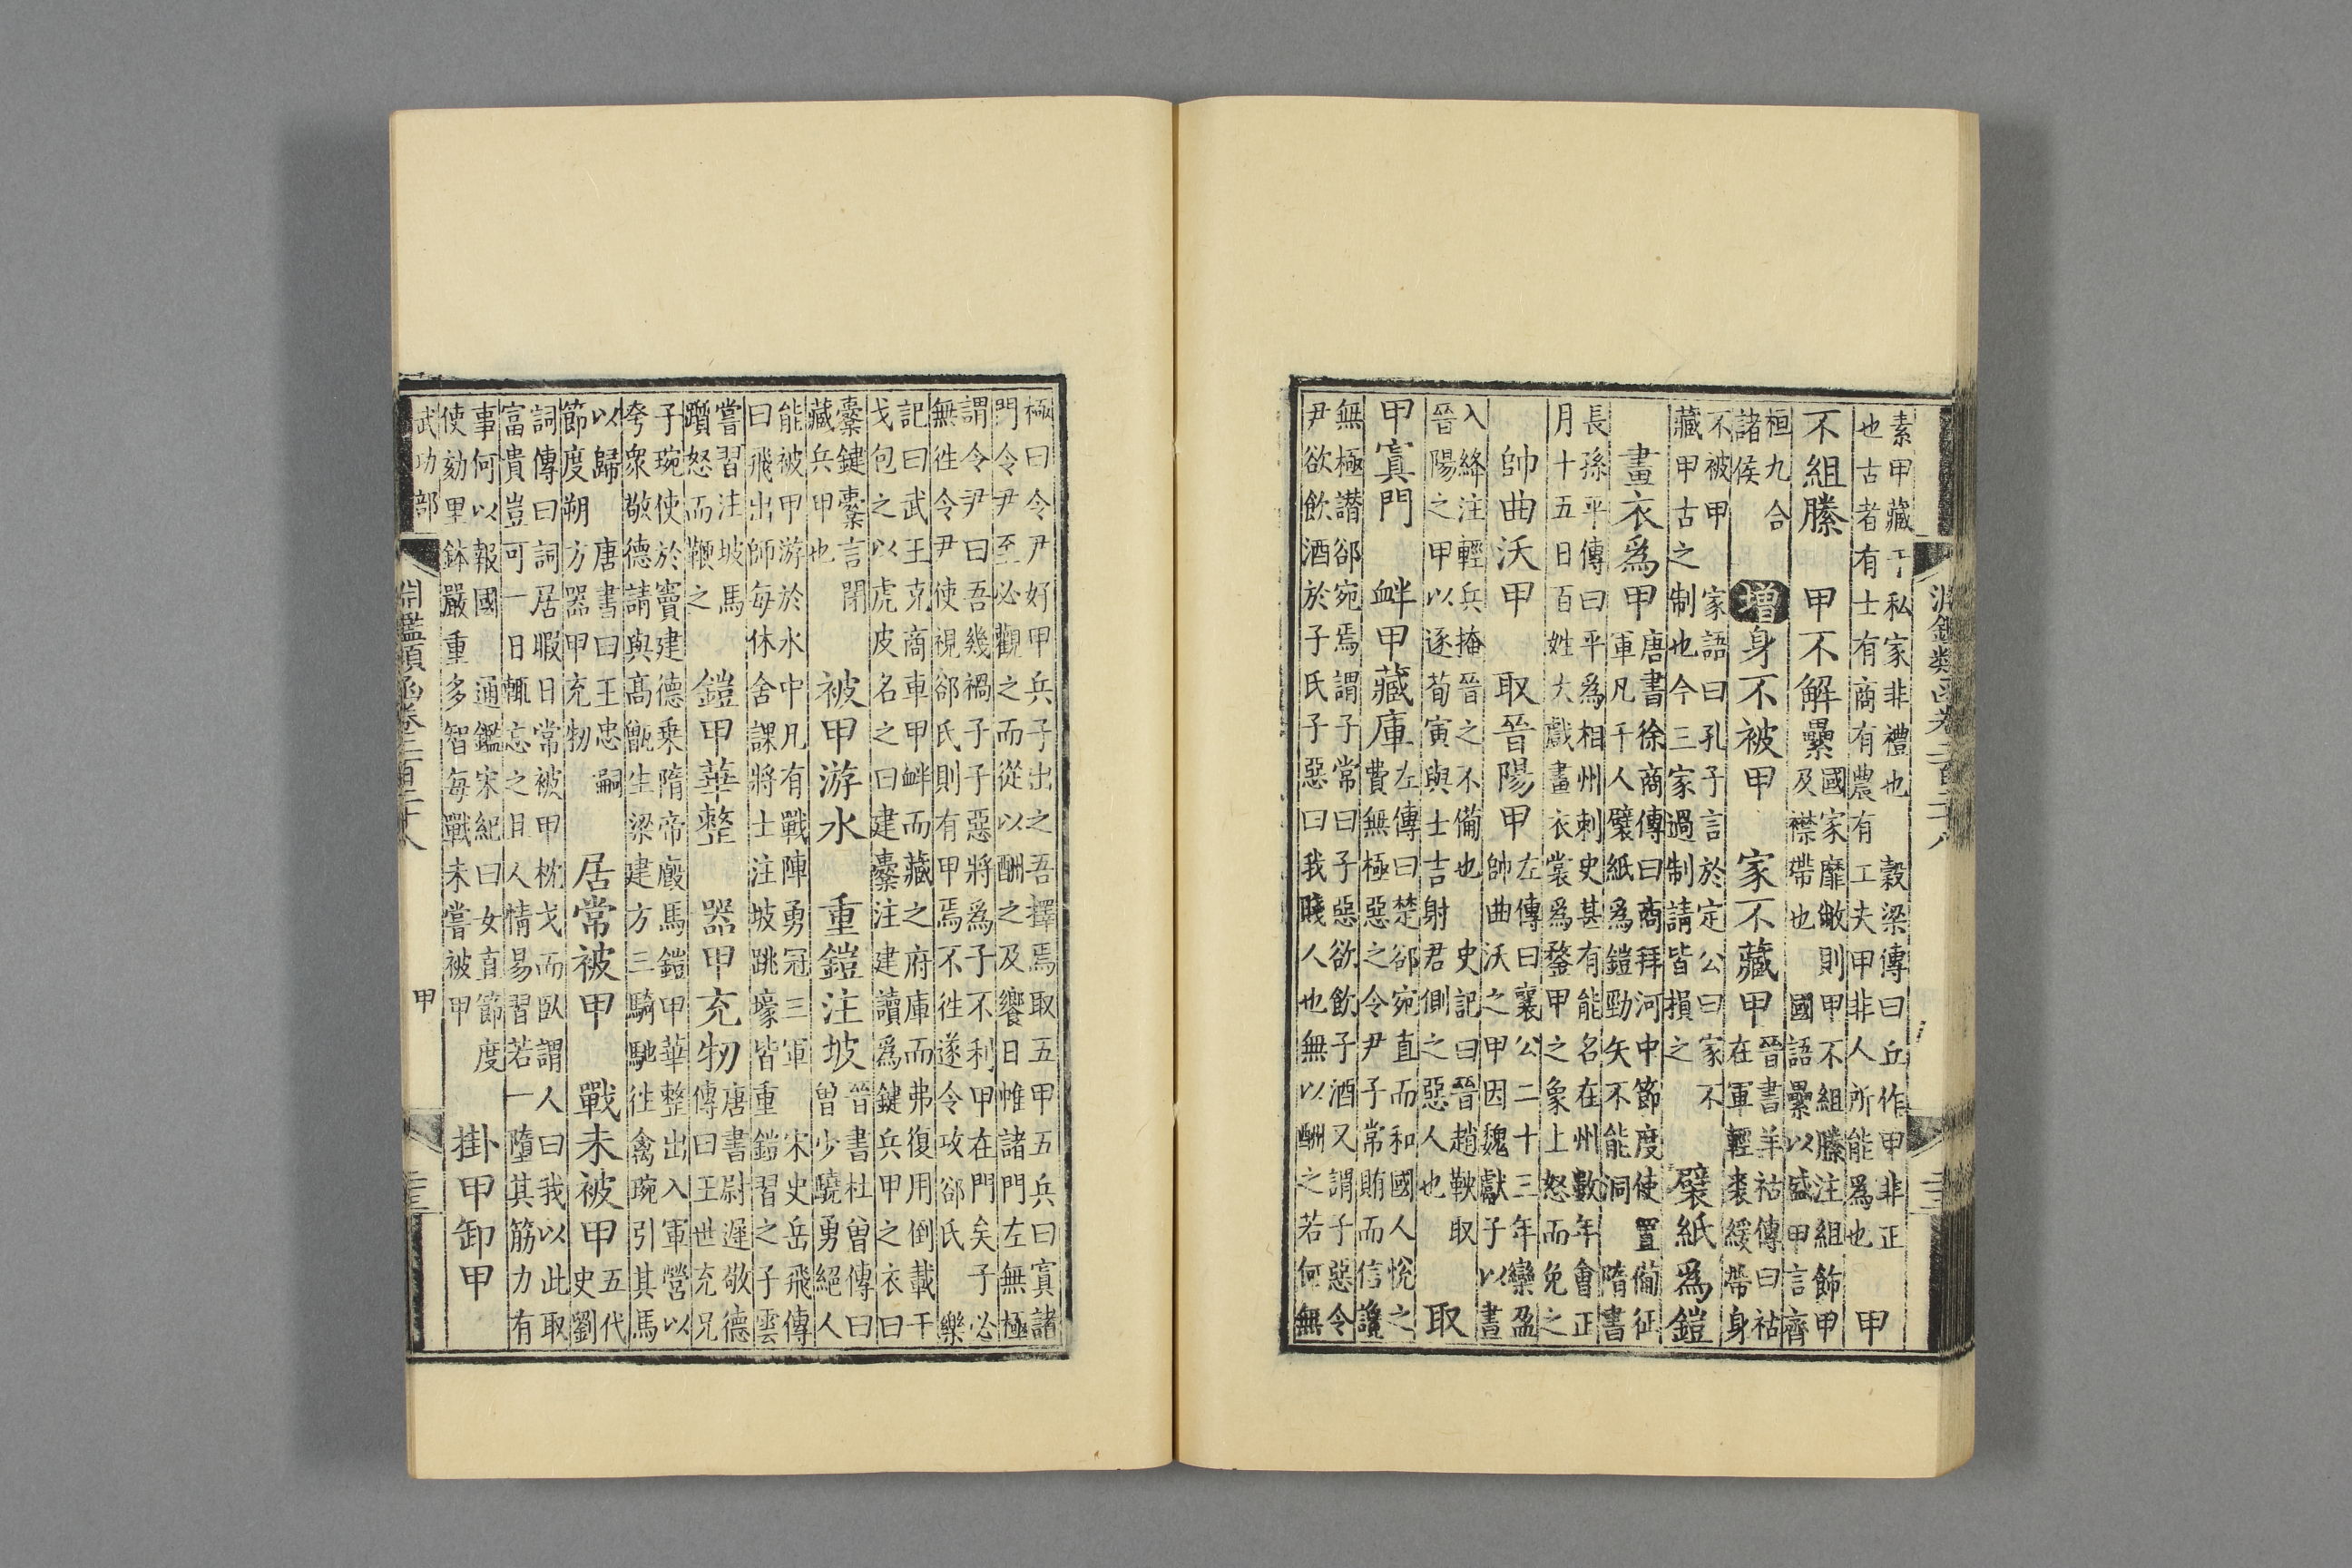 淵鑑類函卷二百二十八
素甲藏于私家非禮也 穀梁傳曰丘作甲非正
也古者有士有商有農有工夫甲非人所能為也 甲
不組縢 甲不解纍
國家靡敝則甲不組縢注組飾甲
及襟帶也 國語纍以盛甲言齊
桓九合
諸侯
增 身不被甲 家不藏甲
晉書羊祜傳曰祜
在軍輕裘緩帶身
不被甲 家語曰孔子言於定公曰家不
藏甲古之制也今三家過制請皆損之
襞紙為鎧
畫衣為甲
唐書徐商傳曰商拜河中節度使置備征
軍凡千人襞紙為鎧勁矢不能洞 隋書
長孫平傳曰平為相州刺史甚有能名在州數年會正
月十五日百姓大戲畫衣裳為鍪甲之象上怒而免之
帥曲沃甲 取晉陽甲
左傳曰襄公二十三年欒盈
帥曲沃之甲因魏獻子以晝
入絳注輕兵掩晉之不備也 史記曰晉趙鞅取
晉陽之甲以逐荀寅與士吉射君側之惡人也
取
甲寘門 衅甲藏庫
左傳曰楚郤宛直而和國人悅之
費無極惡之令尹子常賄而信讒
無極譖郤宛焉謂子常曰子惡欲飲子酒又謂子惡令
尹欲飲酒於子氏子惡曰我賤人也無以酬之若何無
極曰令尹好甲兵子出之吾擇焉取五甲五兵曰寘諸
門令尹至必觀之而從以酬之及饗日帷諸門左無極
謂令尹曰吾幾禍子子惡將為子不利甲在門矣子必
無往令尹使視郤氏則有甲焉不往遂令攻郤氏 樂
記曰武王克商車甲衅而藏之府庫而弗復用倒載干
戈包之以虎皮名之曰建櫜注建讀為鍵兵甲之衣曰
櫜鍵櫜言閉
藏兵甲也
被甲游水 重鎧注坡
晉書杜曾傳曰
曾少驍勇絕人
能被甲游於水中凡有戰陣勇冠三軍 宋史岳飛傳
曰飛出師每休舍課將士注坡跳壕皆重鎧習之子雲
嘗習注坡馬
躓怒而鞭之
鎧甲華整 器甲充牣
唐書尉遲敬德
傳曰王世充兄
子琬使於竇建德乘隋帝廄馬鎧甲華整出入軍營以
夸眾敬德請與高甑生梁建方三騎馳往禽琬引其馬
以歸 唐書曰王忠嗣
節度朔方器甲充牣
居常被甲 戰未被甲
五代
史劉
詞傳曰詞居暇日常被甲枕戈而臥謂人曰我以此取
富貴豈可一日輒忘之且人情易習若一墮其筋力有
事何以報國 通鑑宋紀曰女直節度
使劾里鉢嚴重多智每戰未嘗被甲
掛甲卸甲
武功部 淵鑑類函卷二百二十八 甲